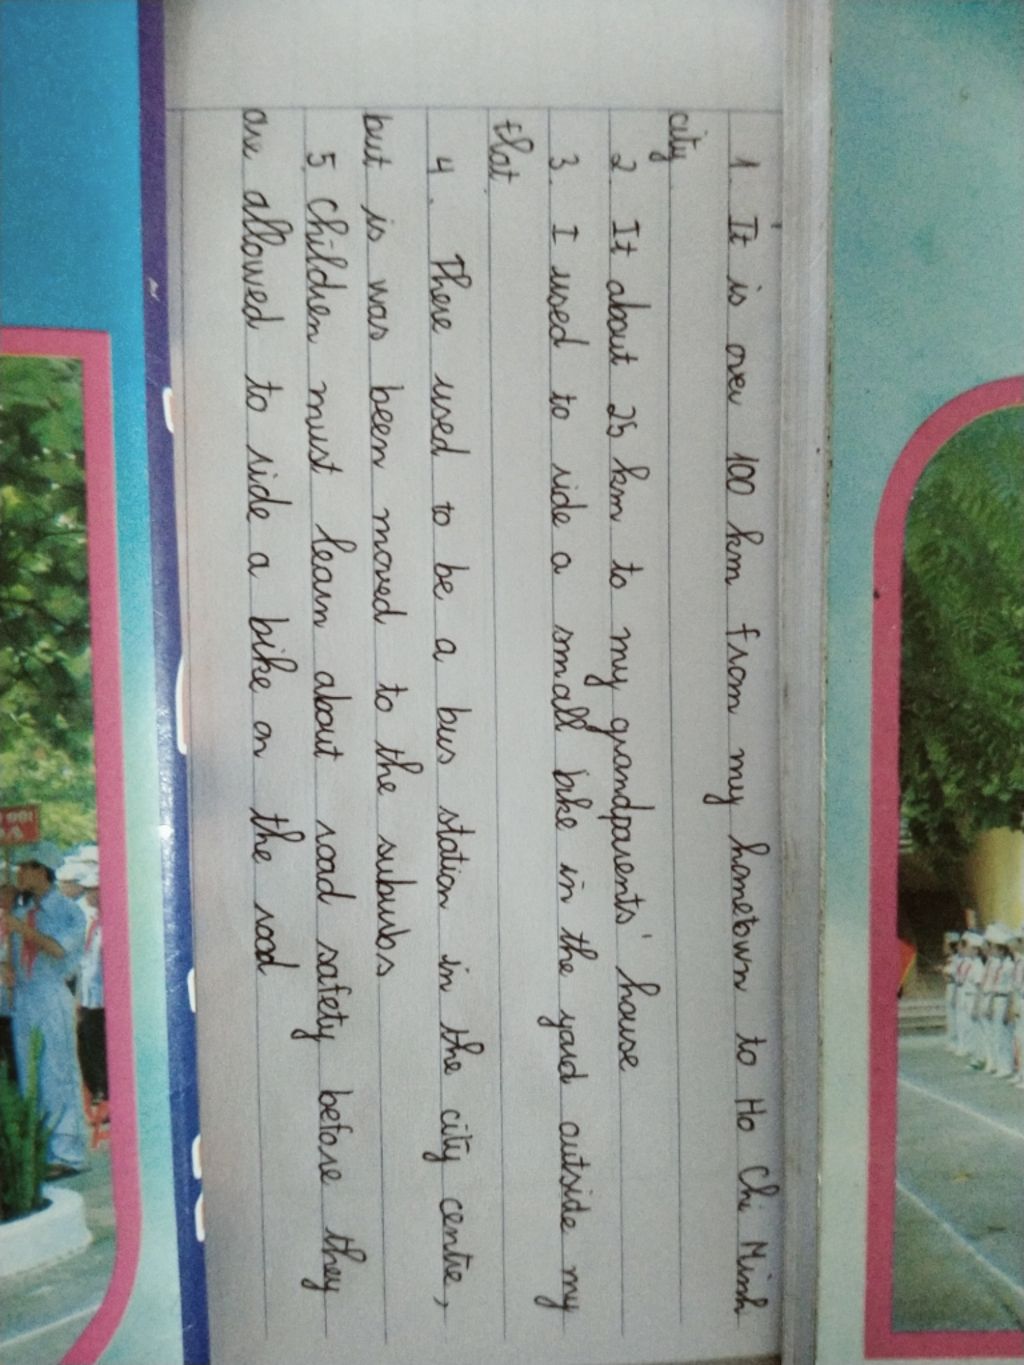 1. It is over 100 km from my hometown to Ho Chi Minh
city.
2. It about 25 km to my grandparents' house
3. I used to ride a small bike in the yard outside my
flat.
4. There used to be a bus station in the city centre,
but is was been moved to the suburbs
5. Children must learn about road safety before they
are allowed to ride a bike on the road